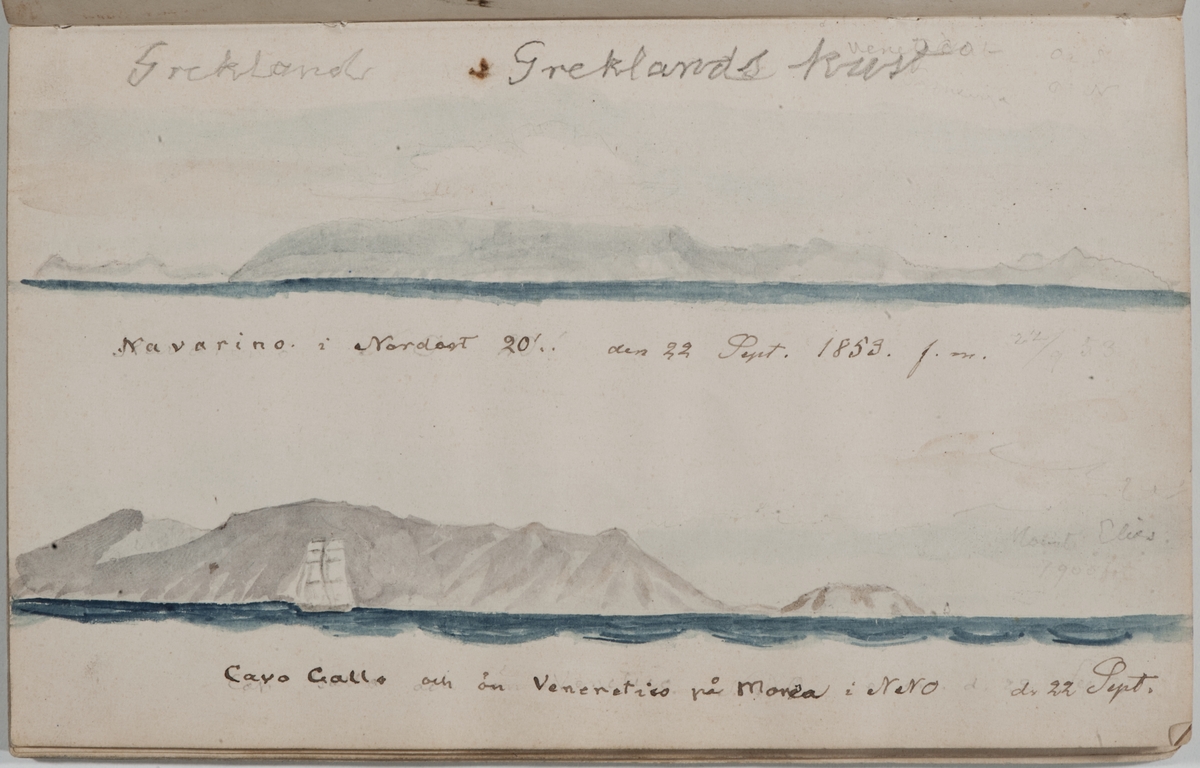 Grekland Greklands kust
Navarino. i Nordost 20'. den 22 Sept. 1853. f. m.
Mount Elias.
Cavo Gallo och ön Veneretico på Morea i NNO d. 22 Sept.